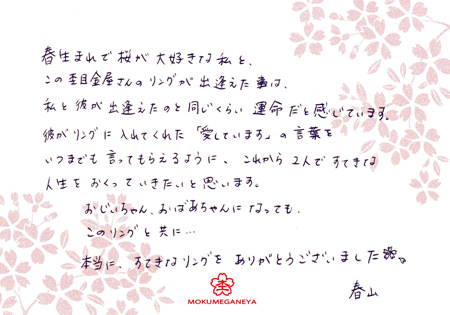 春生まれで桜が大好きな私と、
この杢目金屋さんのリングが出逢えた事は、
私と彼が出逢えたのと同じくらい運命だと感じています。
彼がリングに入れてくれた「愛しています」の言葉を
いつまでも言ってもらえるように、これから2人ですてきな
人生をおくっていきたいと思います。
おじいちゃん、おばあちゃんになっても、
このリングと共に…
本当に、すてきなリングをありがとうございました。
杢
MOKUMEGANEYA
春山